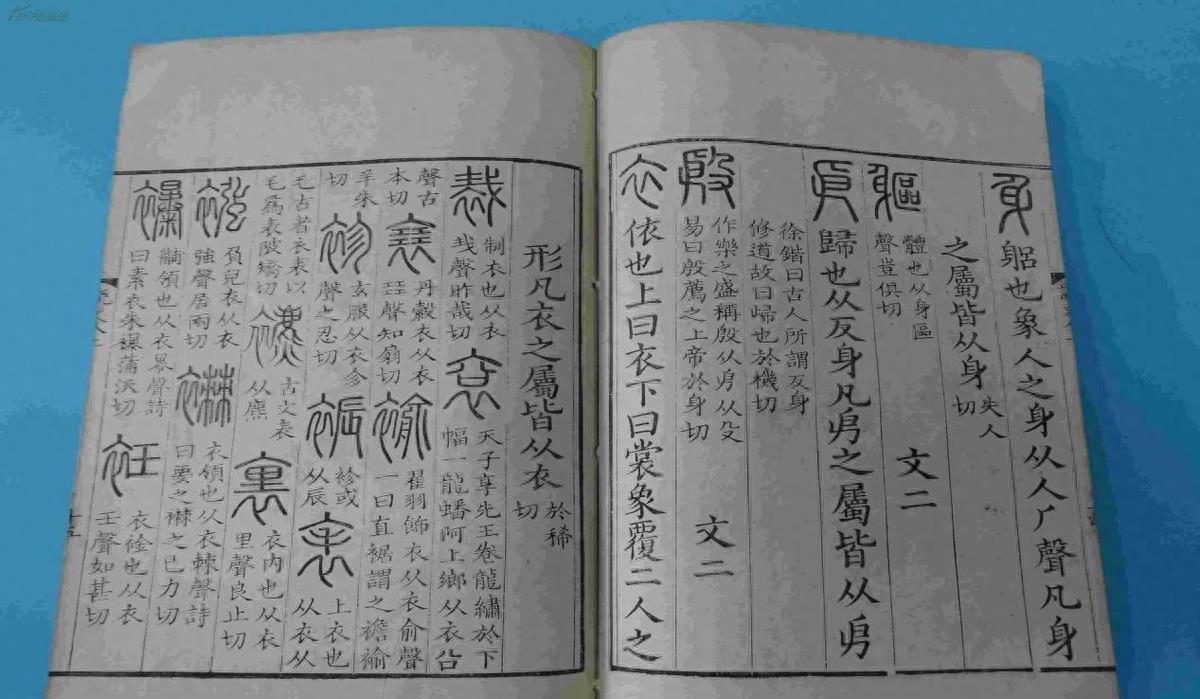 身 躳也象人之身从人厂聲凡身
之屬皆从身 失人切
軀 體也从身區聲豈俱切 文二
㐆 歸也从反身凡㐆之屬皆从㐆
徐鍇曰古人所謂反身修道故曰歸也於機切
殷 作樂之盛稱殷从㐆从殳易曰殷薦之上帝於身切 文二
衣 依也上曰衣下曰裳象覆二人之
形凡衣之屬皆从衣 於稀切
裁 制衣也从衣𢦏聲昨哉切 袞 天子享先王卷龍繡於下幅一龍蟠阿上鄉从衣公
聲古本切 襄 丹縠衣从衣㠭聲知扇切 褕 翟羽飾衣从衣俞聲一曰直裾謂之襜褕
羊朱切 袗 玄服从衣㐱聲之忍切 裖 袗或从辰 表 上衣也从衣从
毛古者衣裘以毛爲表陂矯切 古文表从麃 裏 衣内也从衣里聲良止切
襁 負兒衣从衣強聲居兩切 襋 衣領也从衣棘聲詩曰要之襋之己力切
襮 黼領也从衣暴聲詩曰素衣朱襮蒲沃切 衽 衣裣也从衣壬聲如甚切
十五